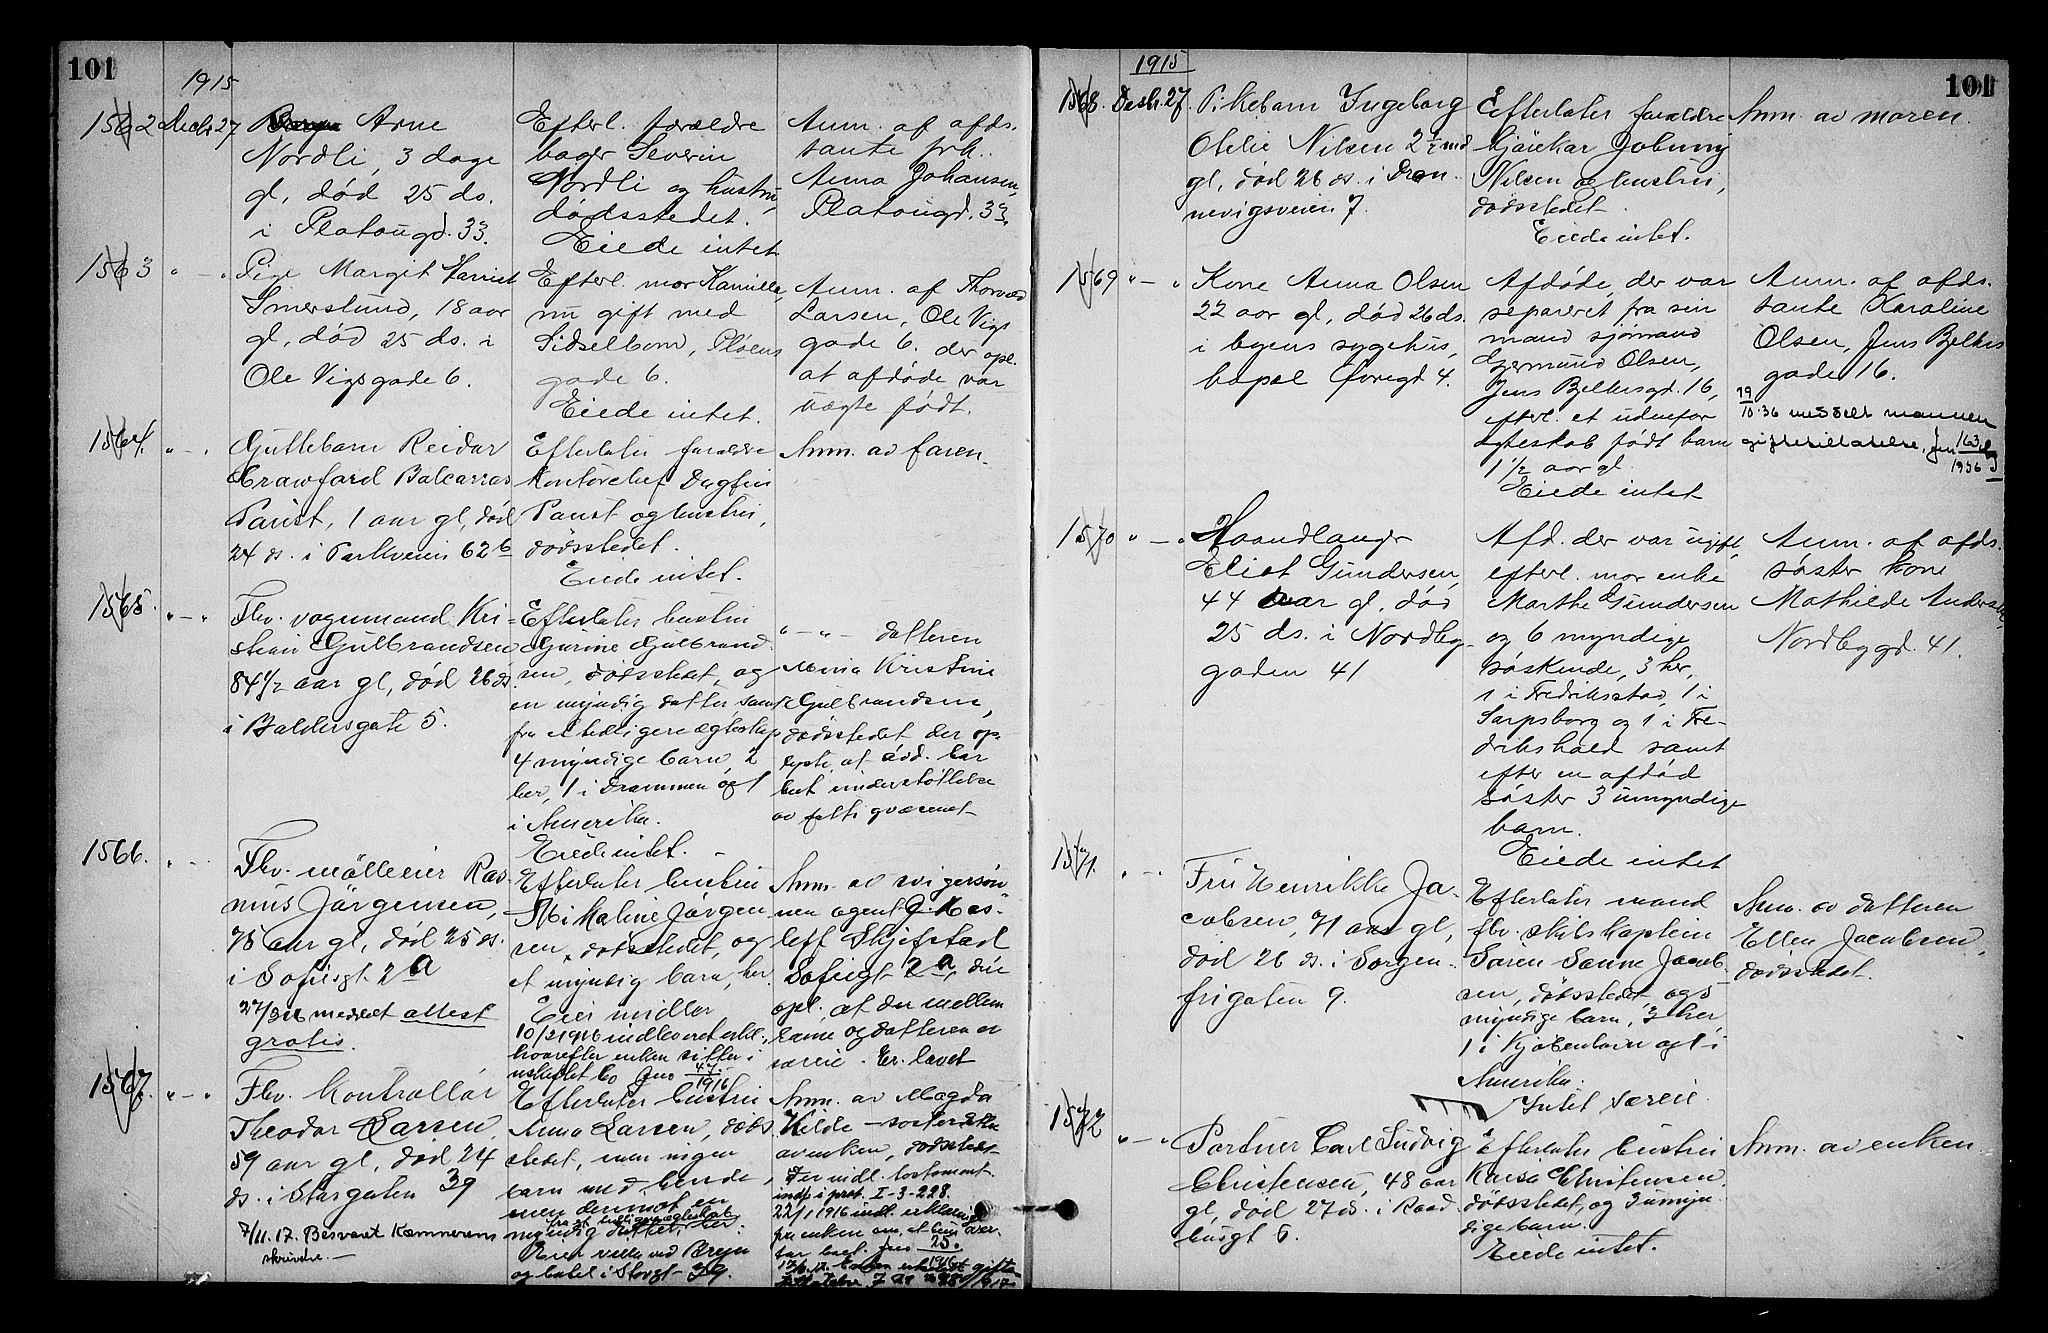 101
1915
1562 Decbr. 27
Arne
Nordli, 3 dage
gl, død 25 ds.
i Platougd. 33.
Efterl. forældre
bager Severin
Nordli og hustru,
dødsstedet.
Eiede intet
Anm. af afds.
tante frk.
Anna Johansen,
Platougd. 33.
1563 " — "
Pige Margit Harriet
Smerslund, 18 aar
gl, død 25 ds. i
Ole Vigsgade 6.
Efterl. mor Kamilla,
nu gift med
Sidselbom, Pløens
gade 6.
Eiede intet.
Anm. af Thorvald
Larsen, Ole Vigs
gade 6. der opl.
at afdøde var
uægte født.
1564. " — "
Guttebarn Reidar
Crawford Balcarras
Paust, 1 aar gl, død
24 ds. i Parkveien 62 b
Efterlater forældre
kontorchef Dagfin
Paust og hustru,
dødsstedet.
Eiede intet.
Anm. av faren.
1565. " — "
Fhv. vognmand Kri-
stian Gulbrandsen
84 1/2 aar gl, død 26 ds.
i Baldersgate 5.
Efterlater hustru
Gurine Gulbrand
sen, dødsstedet, og
en myndig datter, samt
fra et tidligere ægteskap
4 myndige barn, 2
her, 1 i Drammen og 1
i Amerika.
Eiede intet.
" — " — datteren
Mina Kristine
Gulbrandsen,
dødsstedet der op-
lyste, at avd. har
hat understøttelse
av fattigvæsenet
1566. " — "
Fhv. mølleeier Ras-
mus Jørgensen,
75 aar gl, død 25 ds.
i Sofiesgt. 2 a
27/3 16 meddelt attest
gratis.
Efterlater hustru
Mikaline Jørgen
sen, dødsstedet, og
et myndig barn, her
Eier midler
10/2 1916 indleveret erkl.,
hvorefter enken sitter i
uskiftet bo Jno 47/1916
Anm. av svigersøn-
nen agent
Skjefstad
Sofiegt 2 a, der
opl. at der mellem
ham og datteren er
særeie. Er lovet
1567. " — "
Fhv. kontrollør
Theodor Larsen,
59 aar gl, død 24
ds. i Storgaten 39
7/11. 17. Besvaret Kæmnerens
skrivelse. —
Efterlater hustru
Anna Larsen, døds
stedet, men ingen
barn med hende,
men derimot en
fra et tidligere ægteskab
myndig datter, her.
Eier villa ved Bryn
og lokal i Storgt 39.
Anm. av Magda
Kilde — søsterdatter
av enken, dødsstedet
Der indl. testament.
indf. i prot. I-3-228.
22/1 1916 indl. erklæring
fra enken om, at hun over-
tar boet. Jno 25./1916
101
1915
1568. Decbr. 27.
Pikebarn Ingeborg
Otelie Nilsen 2 1/2 md
gl, død 26 ds. i Dron-
ningsveien 7.
Efterlater forældre
Johnny
Nilsen og hustru,
dødsstedet
Eiede intet.
Anm. av moren.
1569 " — "
Kone Anna Olsen
22 aar gl, død 26 ds.
i byens sygehus,
bopæl Torvgd 4.
Afdøde, der var
separeret fra sin
mand sjømand
Germund Olsen,
Jens Bjelkesgd. 16,
efterl. et udenfor
egteskab født barn
1 1/2 aar gl.
Eiede intet
Anm. af afds.
tante Karoline
Olsen, Jens Bjelkes
gade 16.
19/10.36 meddelt mannen
giftetillatelse, Jnr 163/1936
1570 " — "
Haandlanger
Eliot Gundersen,
44 aar gl, død
25 ds. i Nordby-
gaden 41
Afd. der var ugift,
efterl. mor enke
Marthe Gundersen
og 6 myndige
søskende, 3 her,
1 i Fredriksstad, 1 i
Sarpsborg og 1 i Fre-
drikshald samt
efter en afdød
søster 3 umyndige
barn.
Eiede intet
Anm. af afds.
søster kone
Mathilde Andersen,
Nordbygd. 41.
1571. " — "
Fru Henrikke Ja-
cobsen, 71 aar gl,
død 26 ds. i Sorgen-
frigaten 9.
Efterlater mand
fhv. skibskaptein
Søren Sanne Jacob-
sen, dødsstedet og 5
myndige barn, 3 her,
1 i Kjøbenhavn og 1 i
Amerika.
Intet særeie.
Anm. av datteren
Ellen Jacobsen,
dødsstedet.
1572 " — "
Portner Carl Ludvig
Christensen, 48 aar
gl, død 27 ds. i Raad-
husgt 6.
Efterlater hustru
Kaisa Christensen.
dødsstedet, og 3 umyn-
dige barn.
Eiede intet.
Anm. av enken